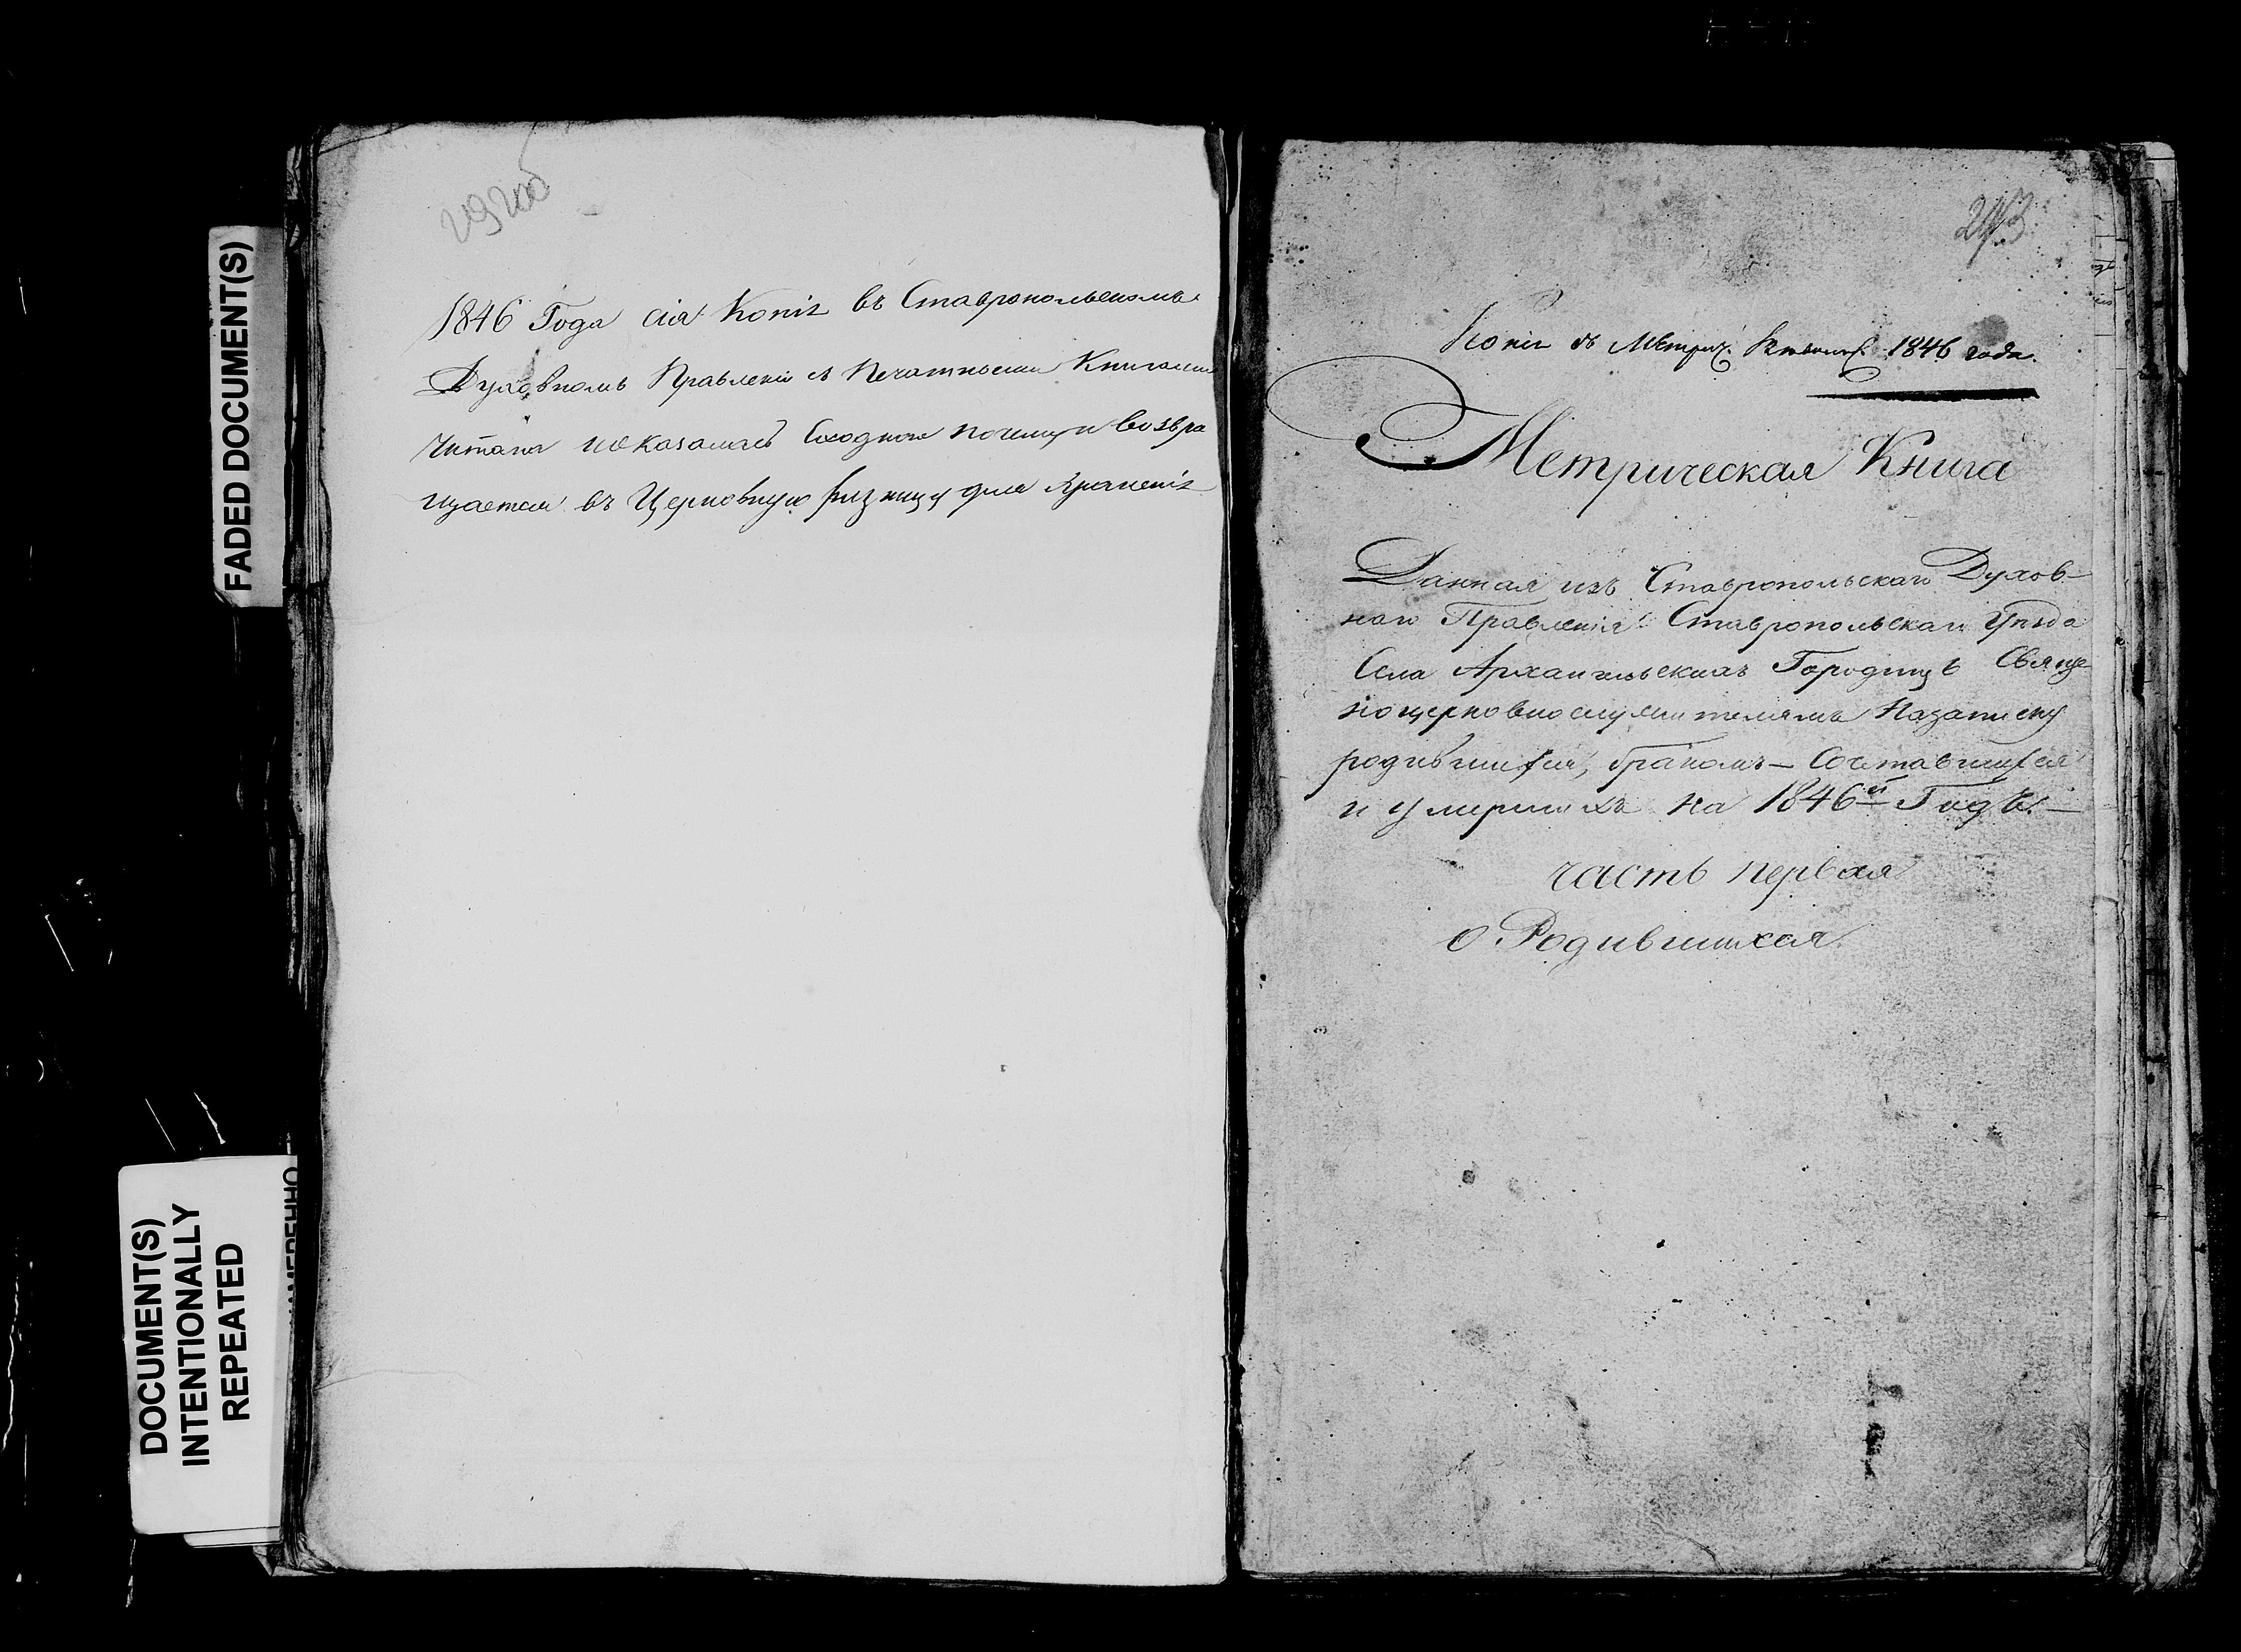 FADED DOCUMENT(S)
DOCUMENT(S)
INTENTIONALLY
REPEATED
1846 Года сія Копіѧ въ Ставропольскомъ
Духовномъ Правленіи съ Печатными Книгами
читана и оказалась Сходною почему и возвра
щается въ Церковную ризницу для храненіѧ
243
Копіѧ съ Метрич. 1846 года.
Метрическая Книга
Данная изъ Ставропольскаго Духов-
наго Правленія Ставропольскаго Уѣзда
Села Архангельскихъ Городищъ Свяще
ноцерковнослужителямъ Назаписку
родившихся, бракомъ — Сочтавшихся
и Умершихъ на 1846й Годъ. —
часть первая
О Родившихся.